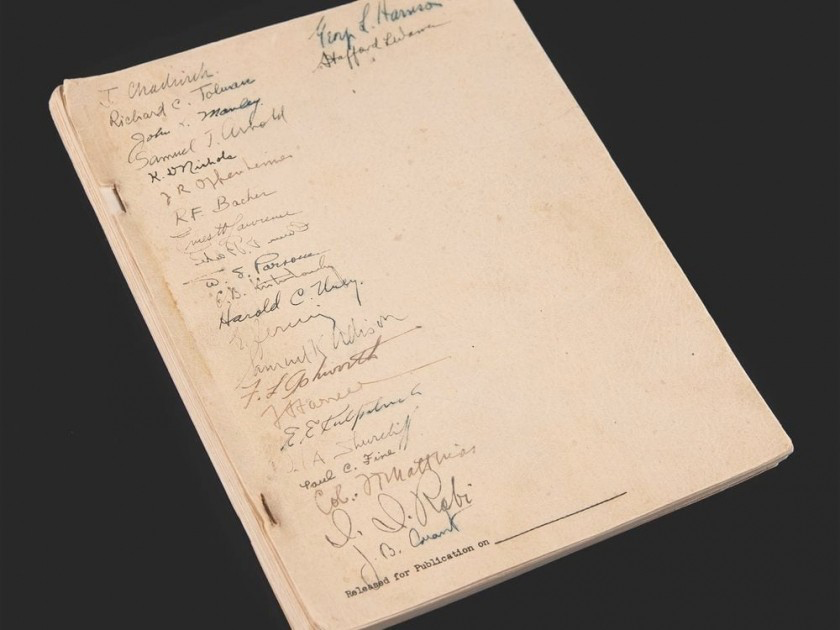 J. Chadwick
Richard C. Tolman
John H. Manley
Samuel T. Arnold
K D Nichols
J R Oppenheimer
R.F. Bacher
Ernest Lawrence
W. S. Parsons
Harold C. Urey.
E Fermi
Samuel K Allison
F. L. Ashworth
E. E. Kirkpatrick
W. A. Shurcliff
Paul C. Fine
Col. F T Matthias
I. I. Rabi
J. B. Conant
George L. Harrison
Stafford L Warren
Released for Publication on